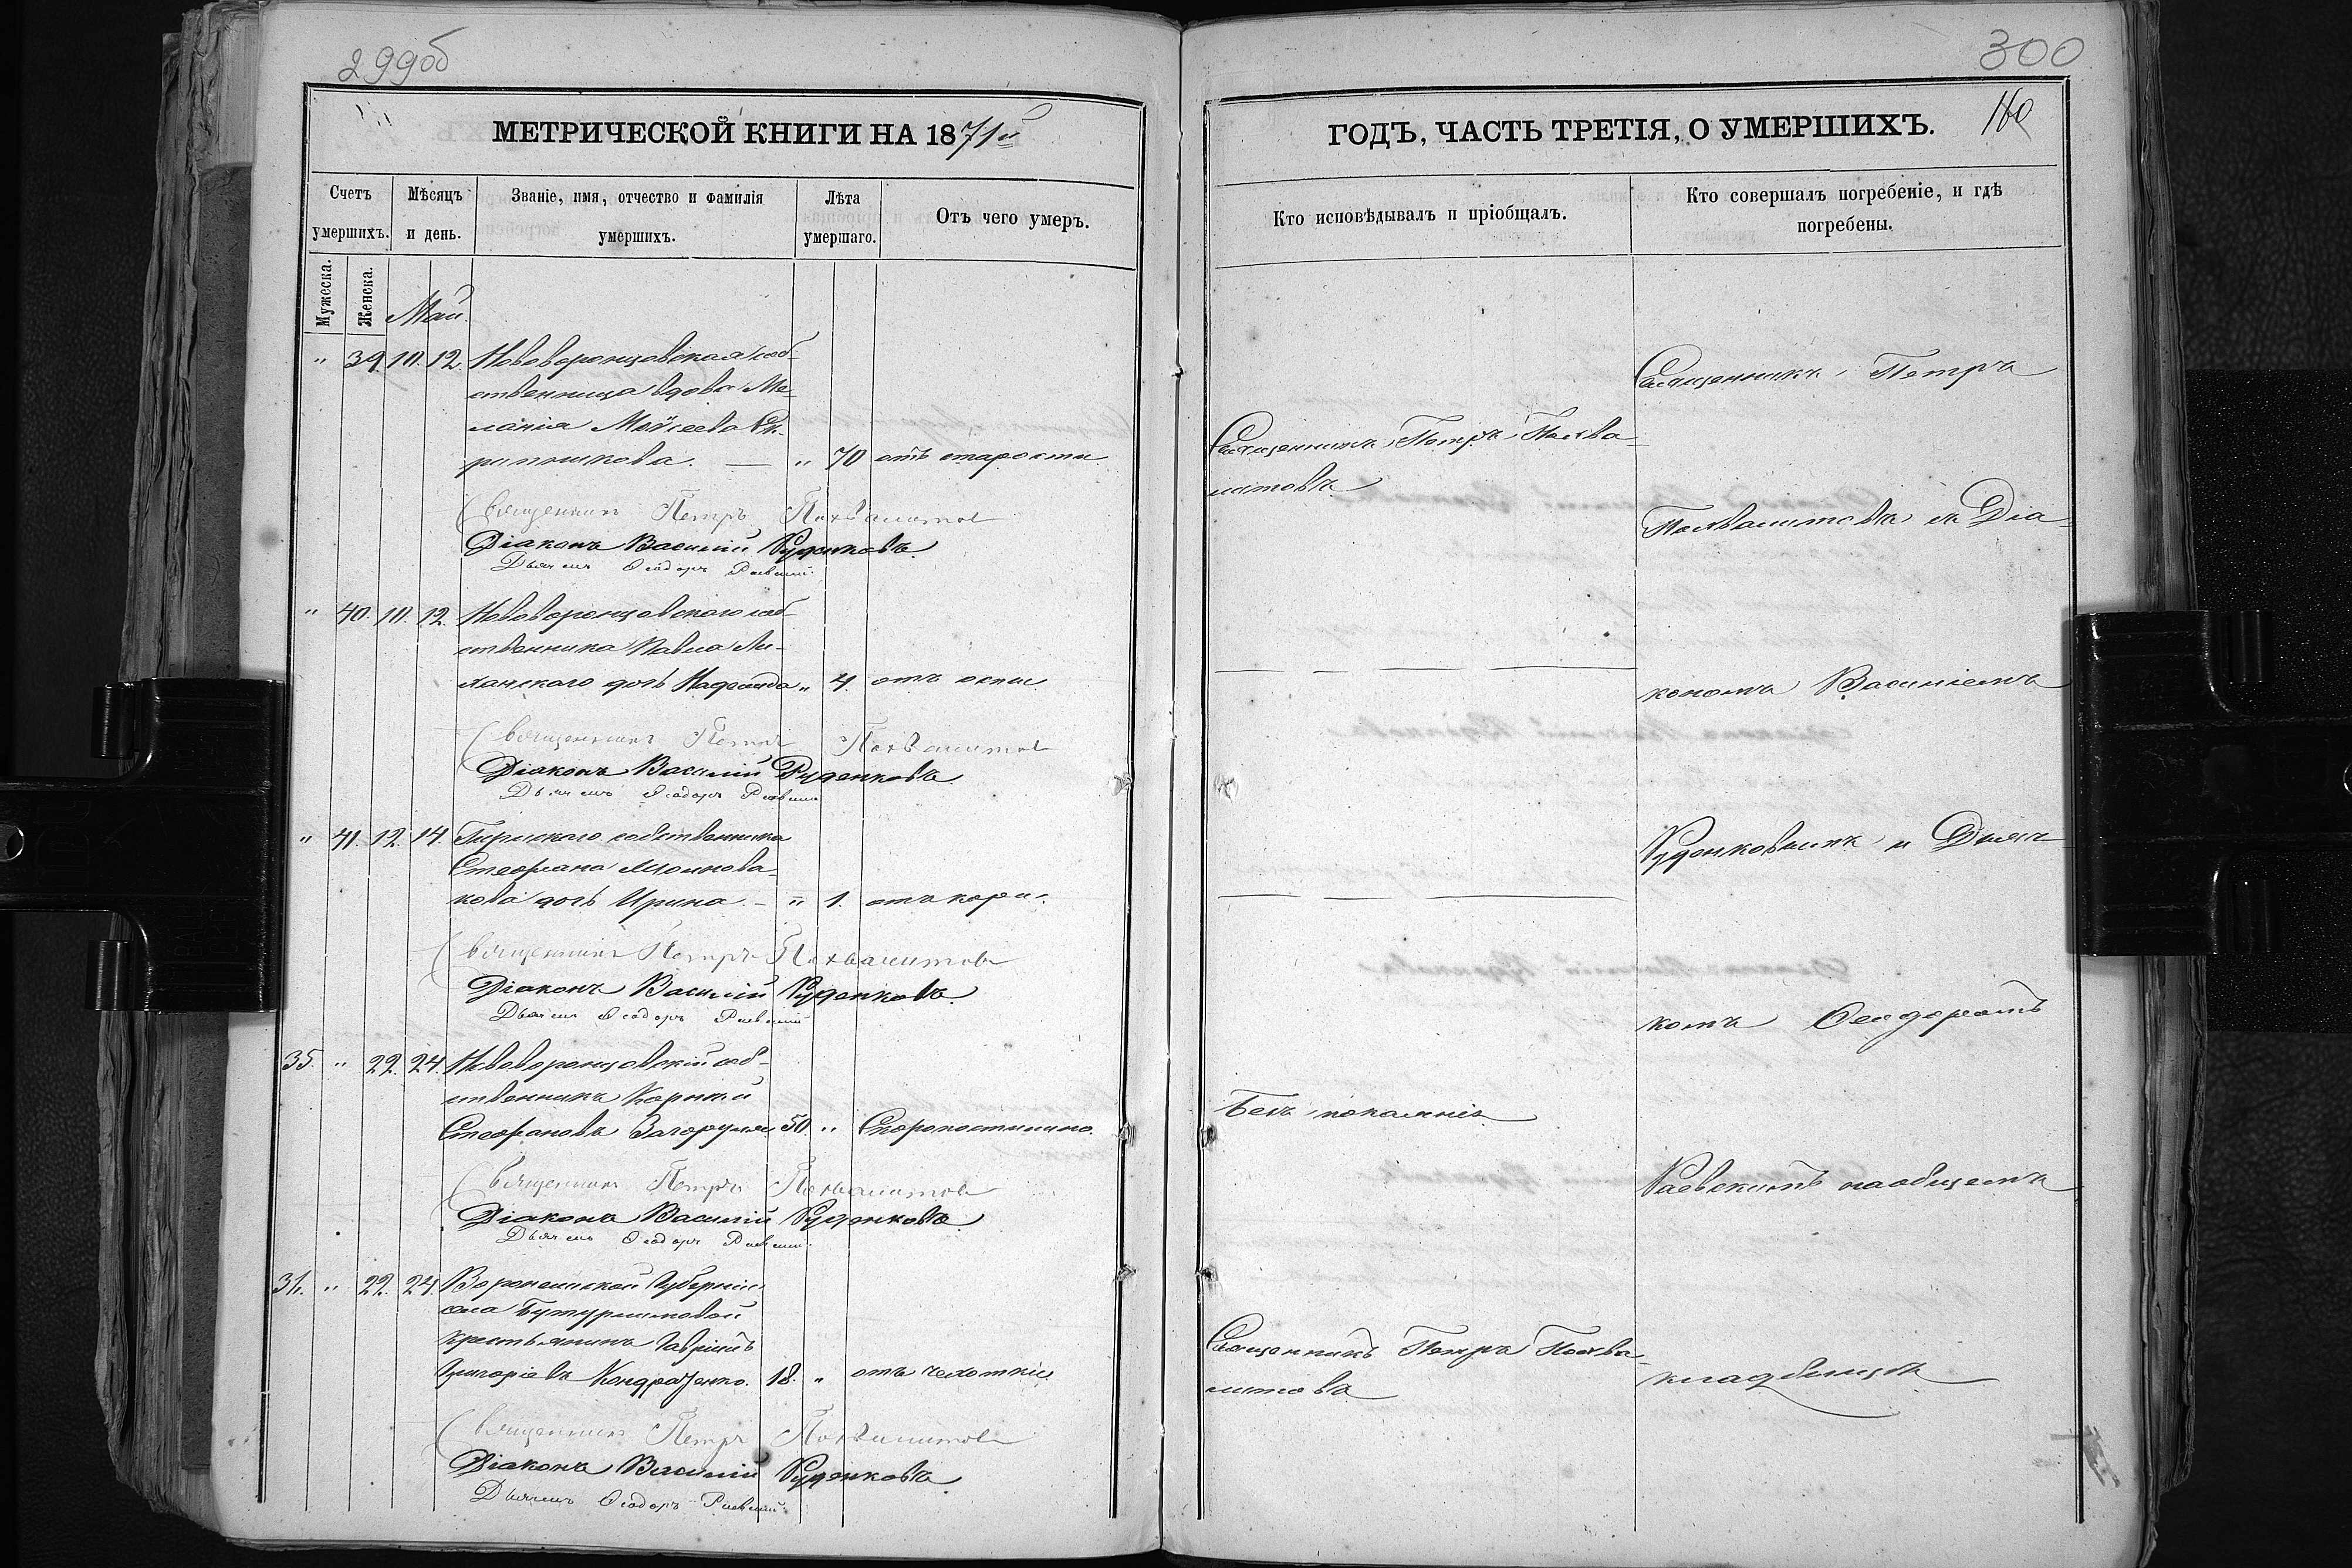 299об
МЕТРИЧЕСКОЙ КНИГИ НА 1871й
Счетъ умершихъ.
Мѣсяцъ и день.
Званіе, имя, отчество и фамилія умершихъ.
Лѣта умершаго.
Отъ чего умеръ.
Мужеска.
Женска.
Май.
" 39. 10. 12. Нововоронцовская соб-
ственница вдова Ме-
ланія Моѵсеева Ск-
рипникова. — " 70 отъ старости
Священникъ Петръ Похвалитов
Діаконъ Василій Руденковъ.
Дьячекъ Ѳеодоръ Раевский.
" 40. 10. 12. Нововоронцовскаго соб-
ственника Павла
дочь " 4. отъ оспы
Священникъ Петръ Похвалитов
Діаконъ Василій Руденковъ
Дьячекъ Ѳеодоръ Раевский
" 41. 12. 14. собственника
Стефана
кова дочь Ирина. — " 1. отъ кори.
Священникъ Петръ Похвалитов
Діаконъ Василій Руденковъ.
Дьячекъ Ѳеодоръ Раевский
35. " 22. 24. Нововоронцовскій соб-
ственникъ Корнилій
Стефановъ Загоруля 50. " Скоропостижно.
Священникъ Петръ Похвалитов
Діаконъ Василій Руденковъ.
Дьячекъ Ѳеодоръ Раевский.
36. " 22. 24. Воронежской Губерніи
села Бутурлиновой
крестьянинъ Гавріилъ
Григоріевъ Кондратенко. 18. " отъ чахотки
Священникъ Петръ Похвалитов
Діаконъ Василій Руденковъ.
Дьячекъ Ѳеодоръ Раевский.
300
160
ГОДЪ, ЧАСТЬ ТРЕТІЯ, О УМЕРШИХЪ.
Кто исповѣдывалъ и пріобщалъ.
Кто совершалъ погребеніе, и гдѣ
погребены.
Священникъ Петръ Похва-
литовъ
Безъ покаянія
Священникъ Петръ Похва-
литовъ
Священникъ Петръ
Похвалитовъ съ Діа-
кономъ Василіемъ
Руденковымъ и Дьяч-
комъ Ѳеодоромъ
Раевскимъ на общемъ
кладбищѣ